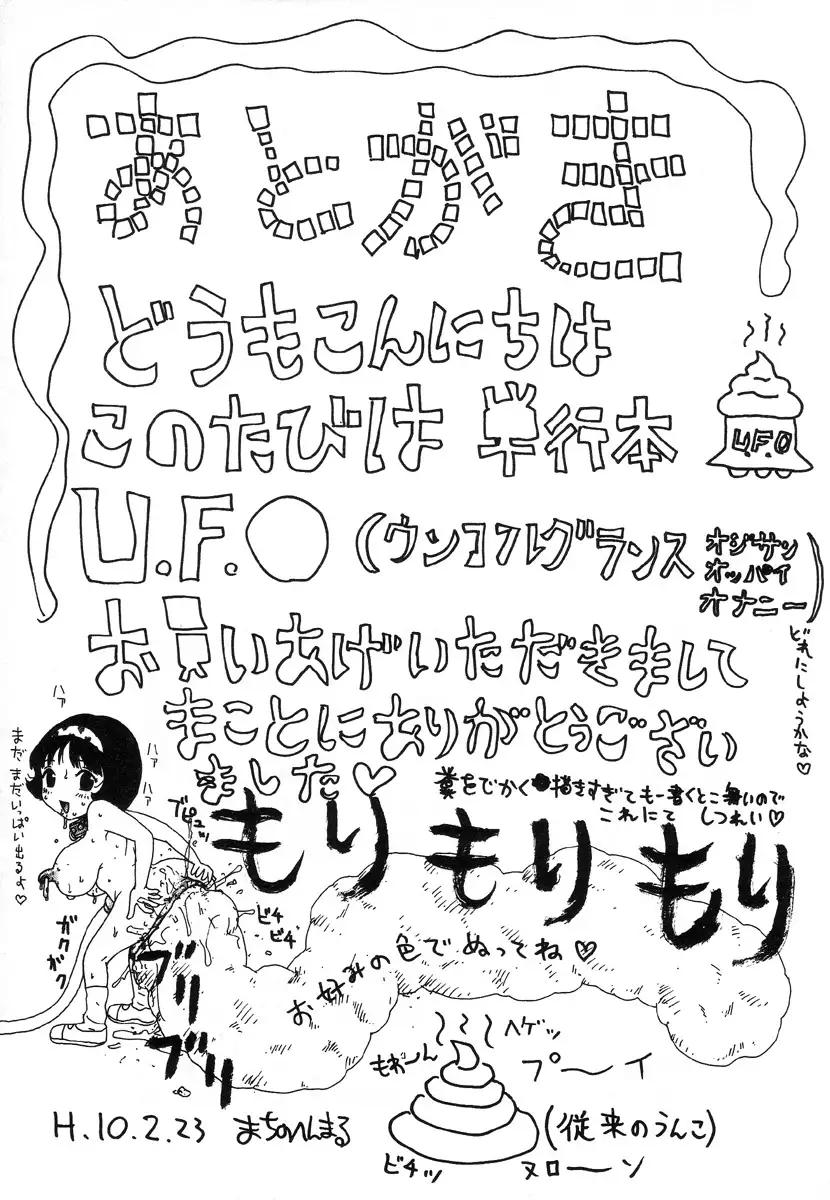 あとがき
どうもこんにちは
このたびは 単行本
U.F.O
U.F.O (ウンコフルグランス オジサン
オッパイ
オナニー)
どれにしようかな♡
お買いあげいただきまして
まことにありがとうござい
ました♡
糞をでかく描きすぎてもー書くとこ無いので
これにて しつれい♡
ハァ
ハァ
ハァ
まだまだいっぱい出るよ♡
ブピュッ
もりもりもり
ビチ
ビチ
ガクガク
ブリブリ
お好みの色でぬってね♡
ヘゲッ
もわ〜ん
プ〜イ
H.10.2.23
(従来のうんこ)
ビチッ
ヌロ〜ン